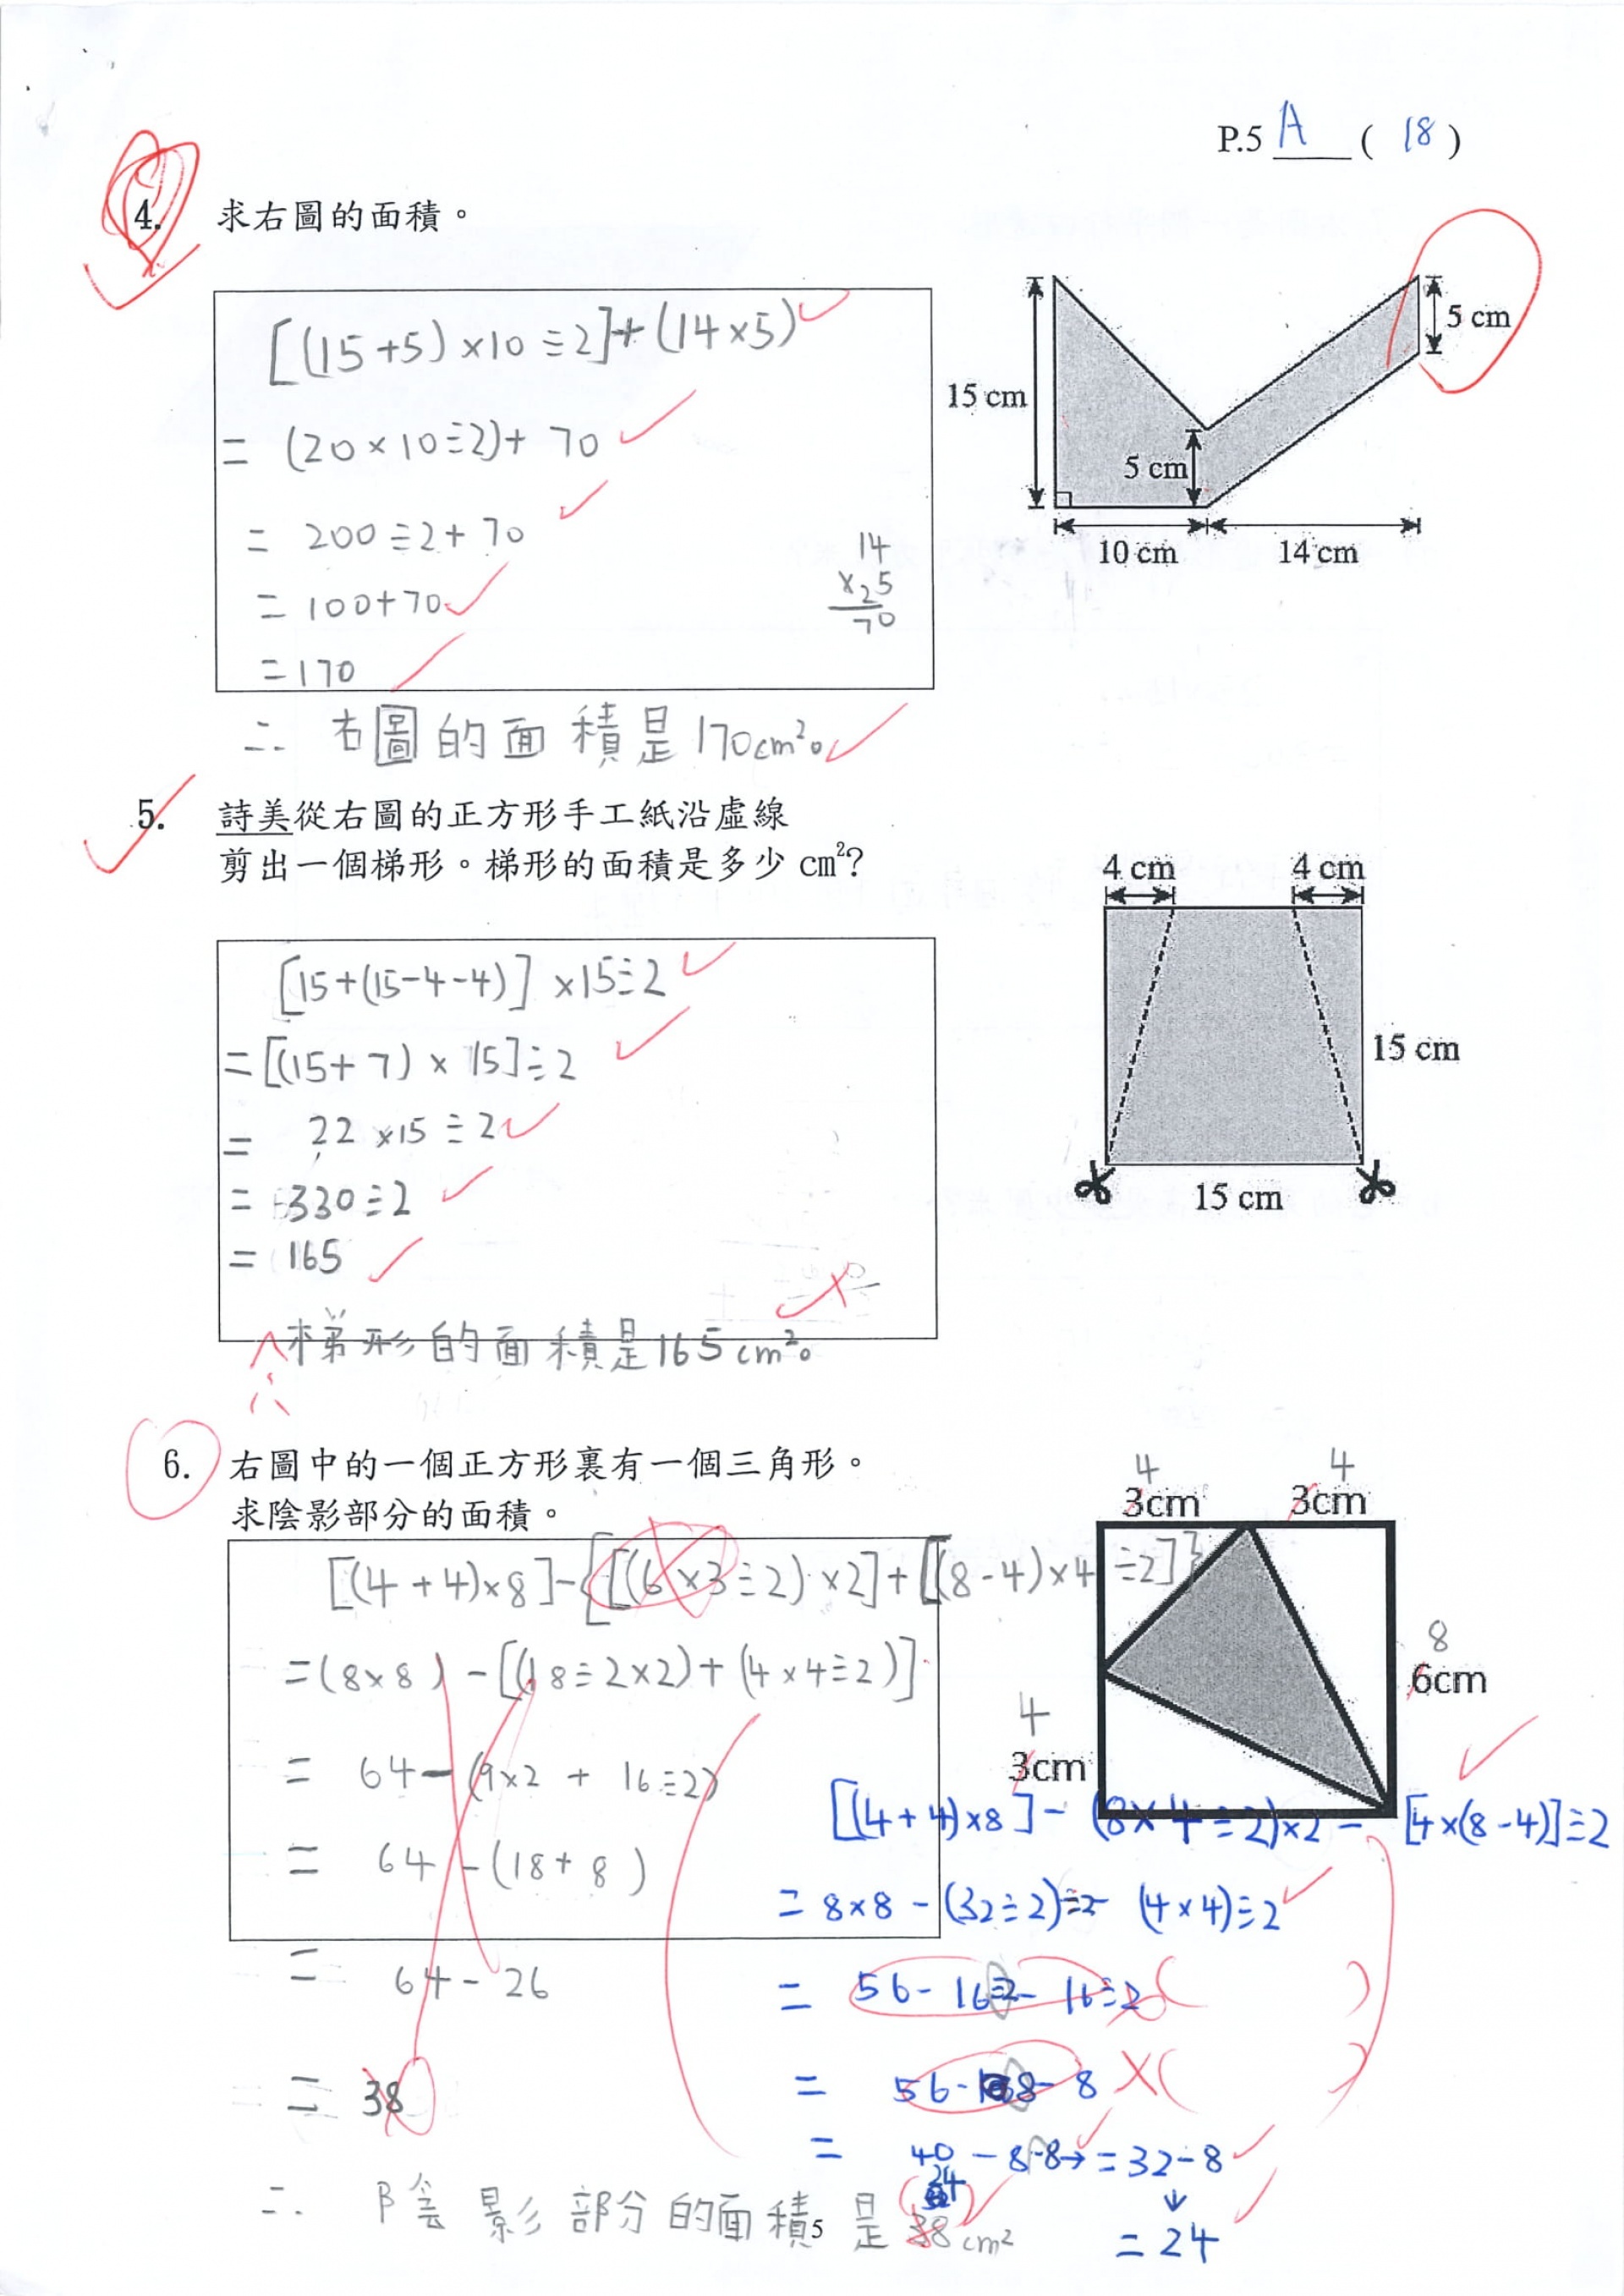 P.5 A ( 18 )
4. 求右圖的面積。
[(15+5)×10÷2]+(14×5)
= (20×10÷2)+ 70
= 200÷2+70
= 100+70
= 170
14
×25
70
∴ 右圖的面積是170cm²。
15 cm
5 cm
5 cm
10 cm
14 cm
5. 詩美從右圖的正方形手工紙沿虛線
剪出一個梯形。梯形的面積是多少 cm²?
[15+(15-4-4)]×15÷2
=[(15+7)×15]÷2
= 22×15÷2
= 330÷2
= 165
∴ 梯形的面積是165cm²。
4 cm
4 cm
15 cm
15 cm
6. 右圖中的一個正方形裏有一個三角形。
求陰影部分的面積。
[(4+4)×8]-{[(6×3÷2)×2]+[(8-4)×4÷2]}
=(8×8)-[(18÷2×2)+(4×4÷2)]
= 64-(9×2 + 16÷2)
= 64-(18+8)
= 64-26
= 38
4
3cm
4
3cm
8
6cm
4
3cm
[(4+4)×8]-(8×4÷2)×2-[4×(8-4)]÷2
= 8×8-(32÷2) (4×4)÷2
= 56-16 16÷2
= 56- 8
= 40-8-8→=32-8
= 24
∴ 陰影部分的面積是 24 38cm²
5